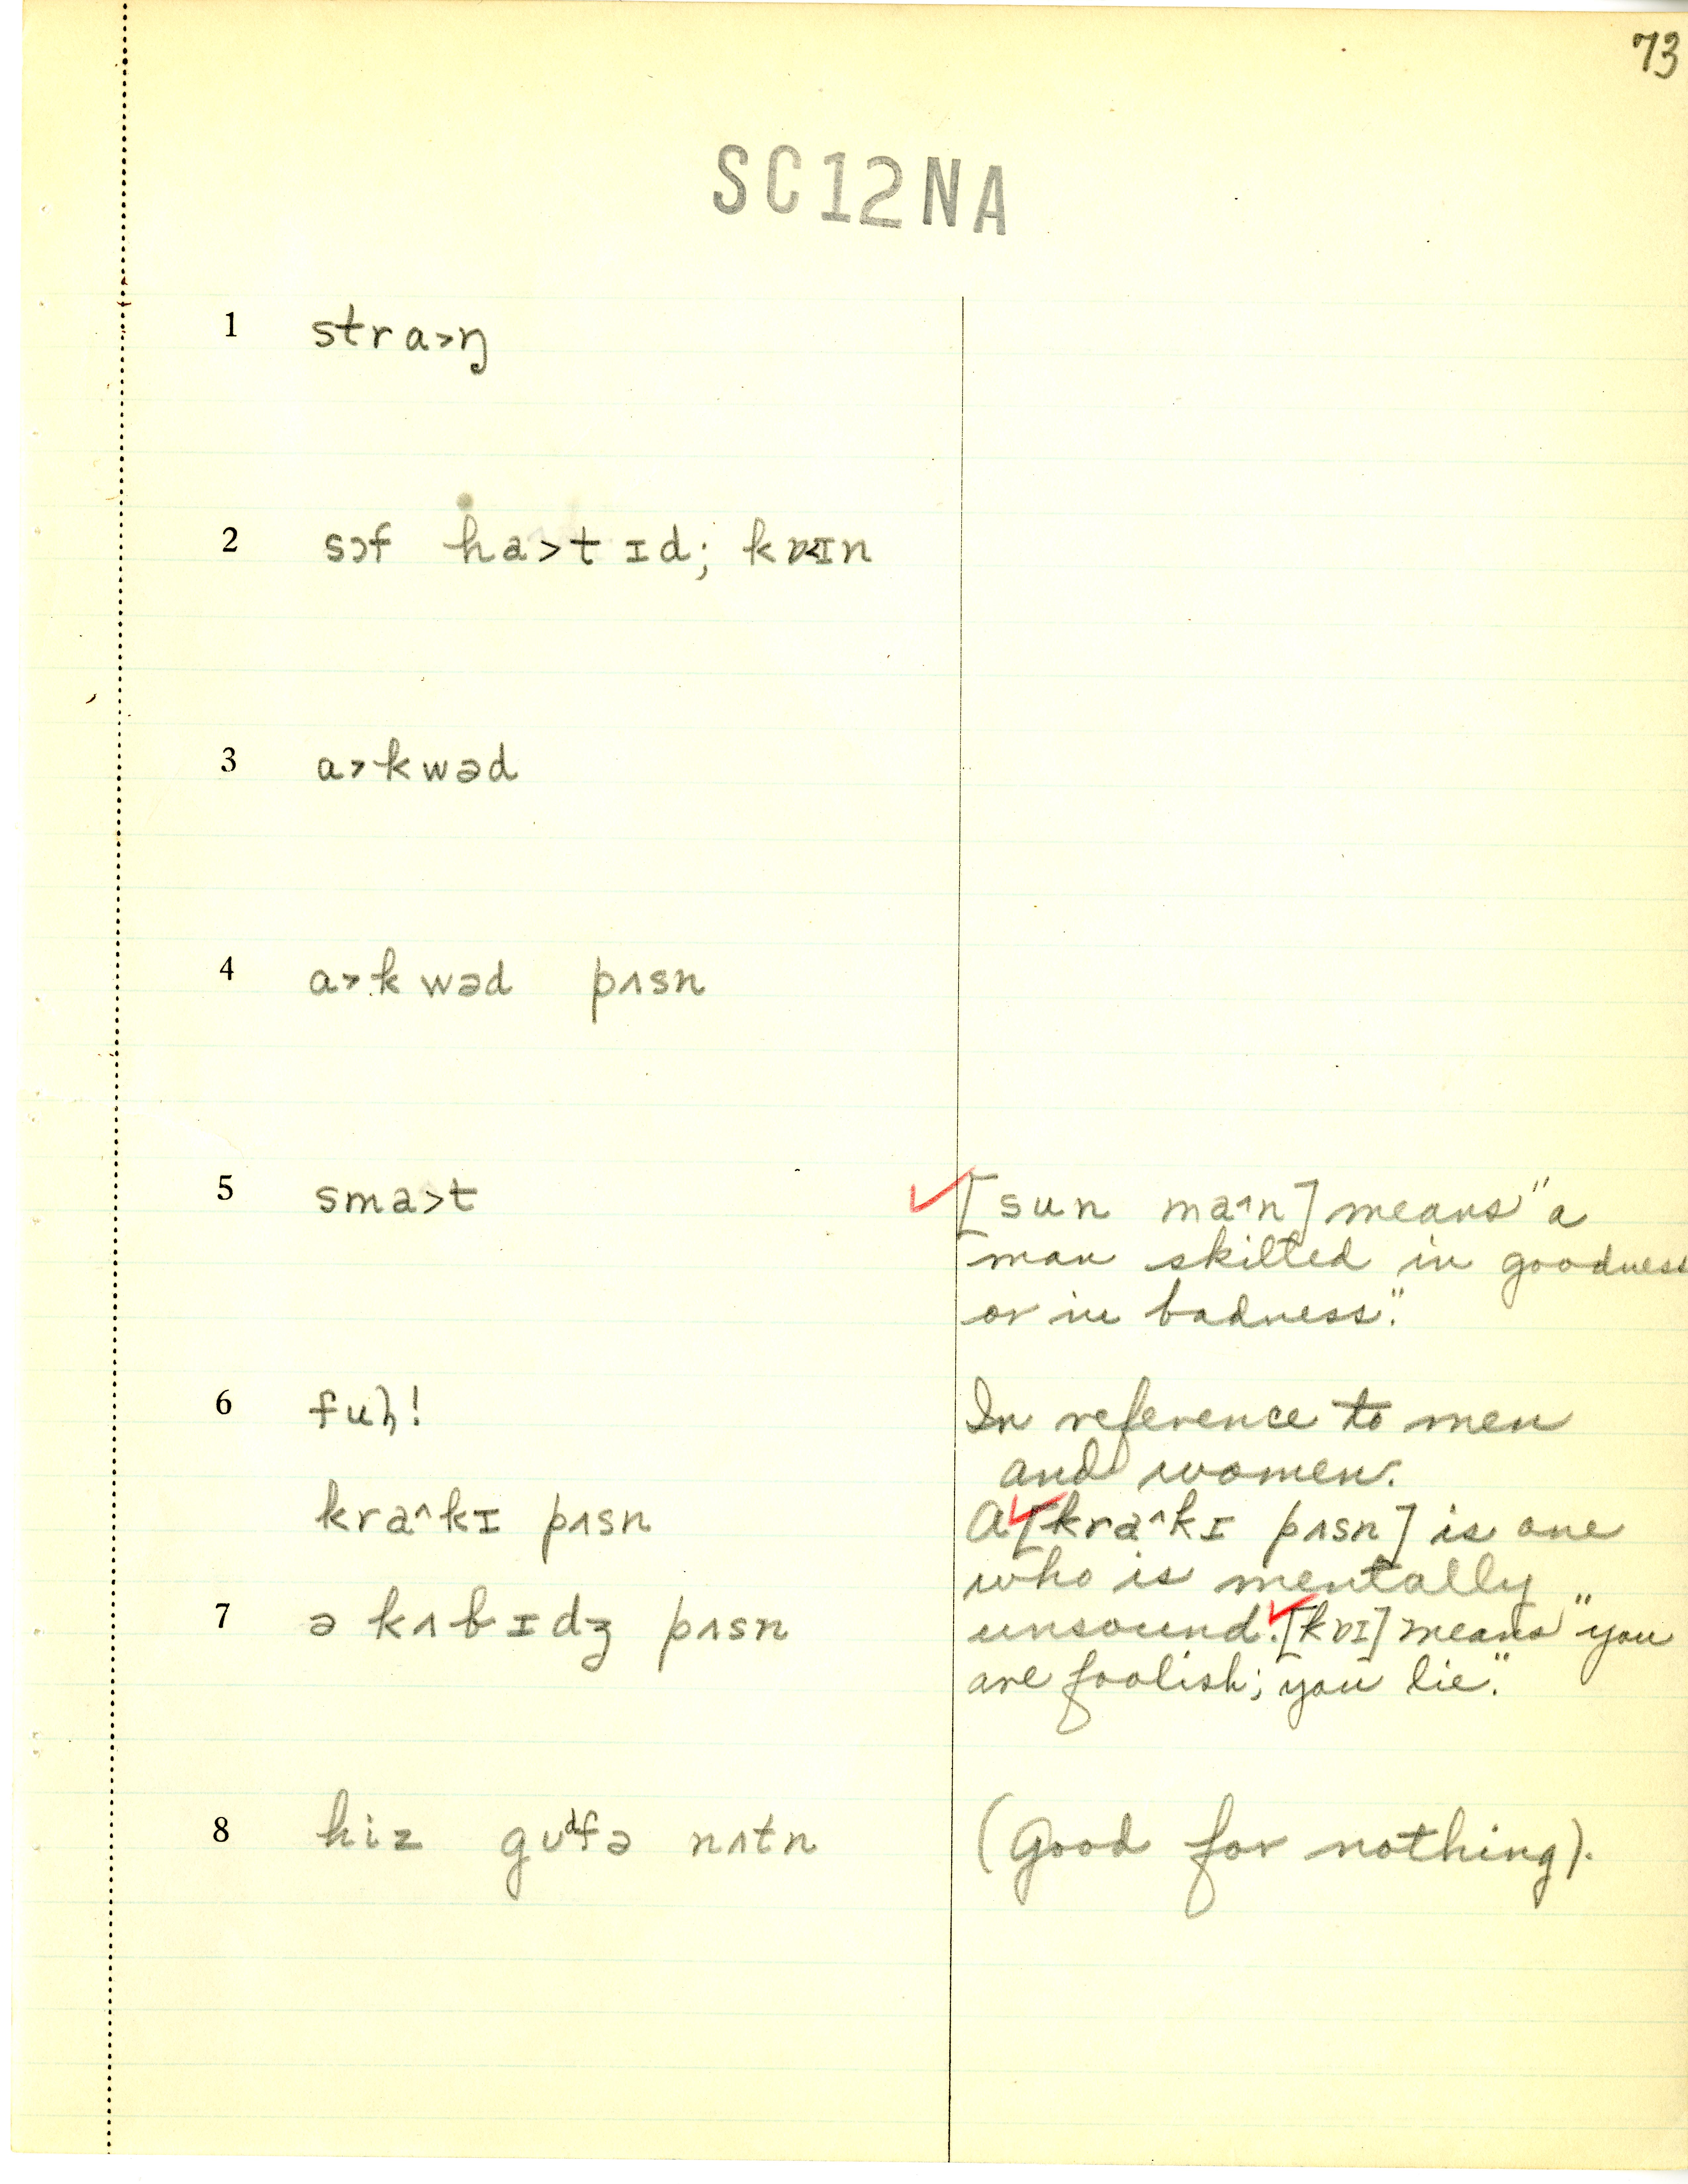 73
SC12NA
1 stra>ŋ
2 sɔf ha>tɪd; kɒ<ɪn
3 a>kwəd
4 a>kwəd pʌsn
5 sma>t
[sun ma^n] means "a
man skilled in goodness
or in badness."
6 fuɦ!
In reference to men
and women.
kra^kɪ pʌsn
A [kra^kɪ pʌsn] is one
who is mentally
7 ə kʌbɪdʒ pʌsn
unsound. [kɒɪ] means "you
are foolish; you lie."
8 hiz gʊᵈfə nʌtn
(Good for nothing).